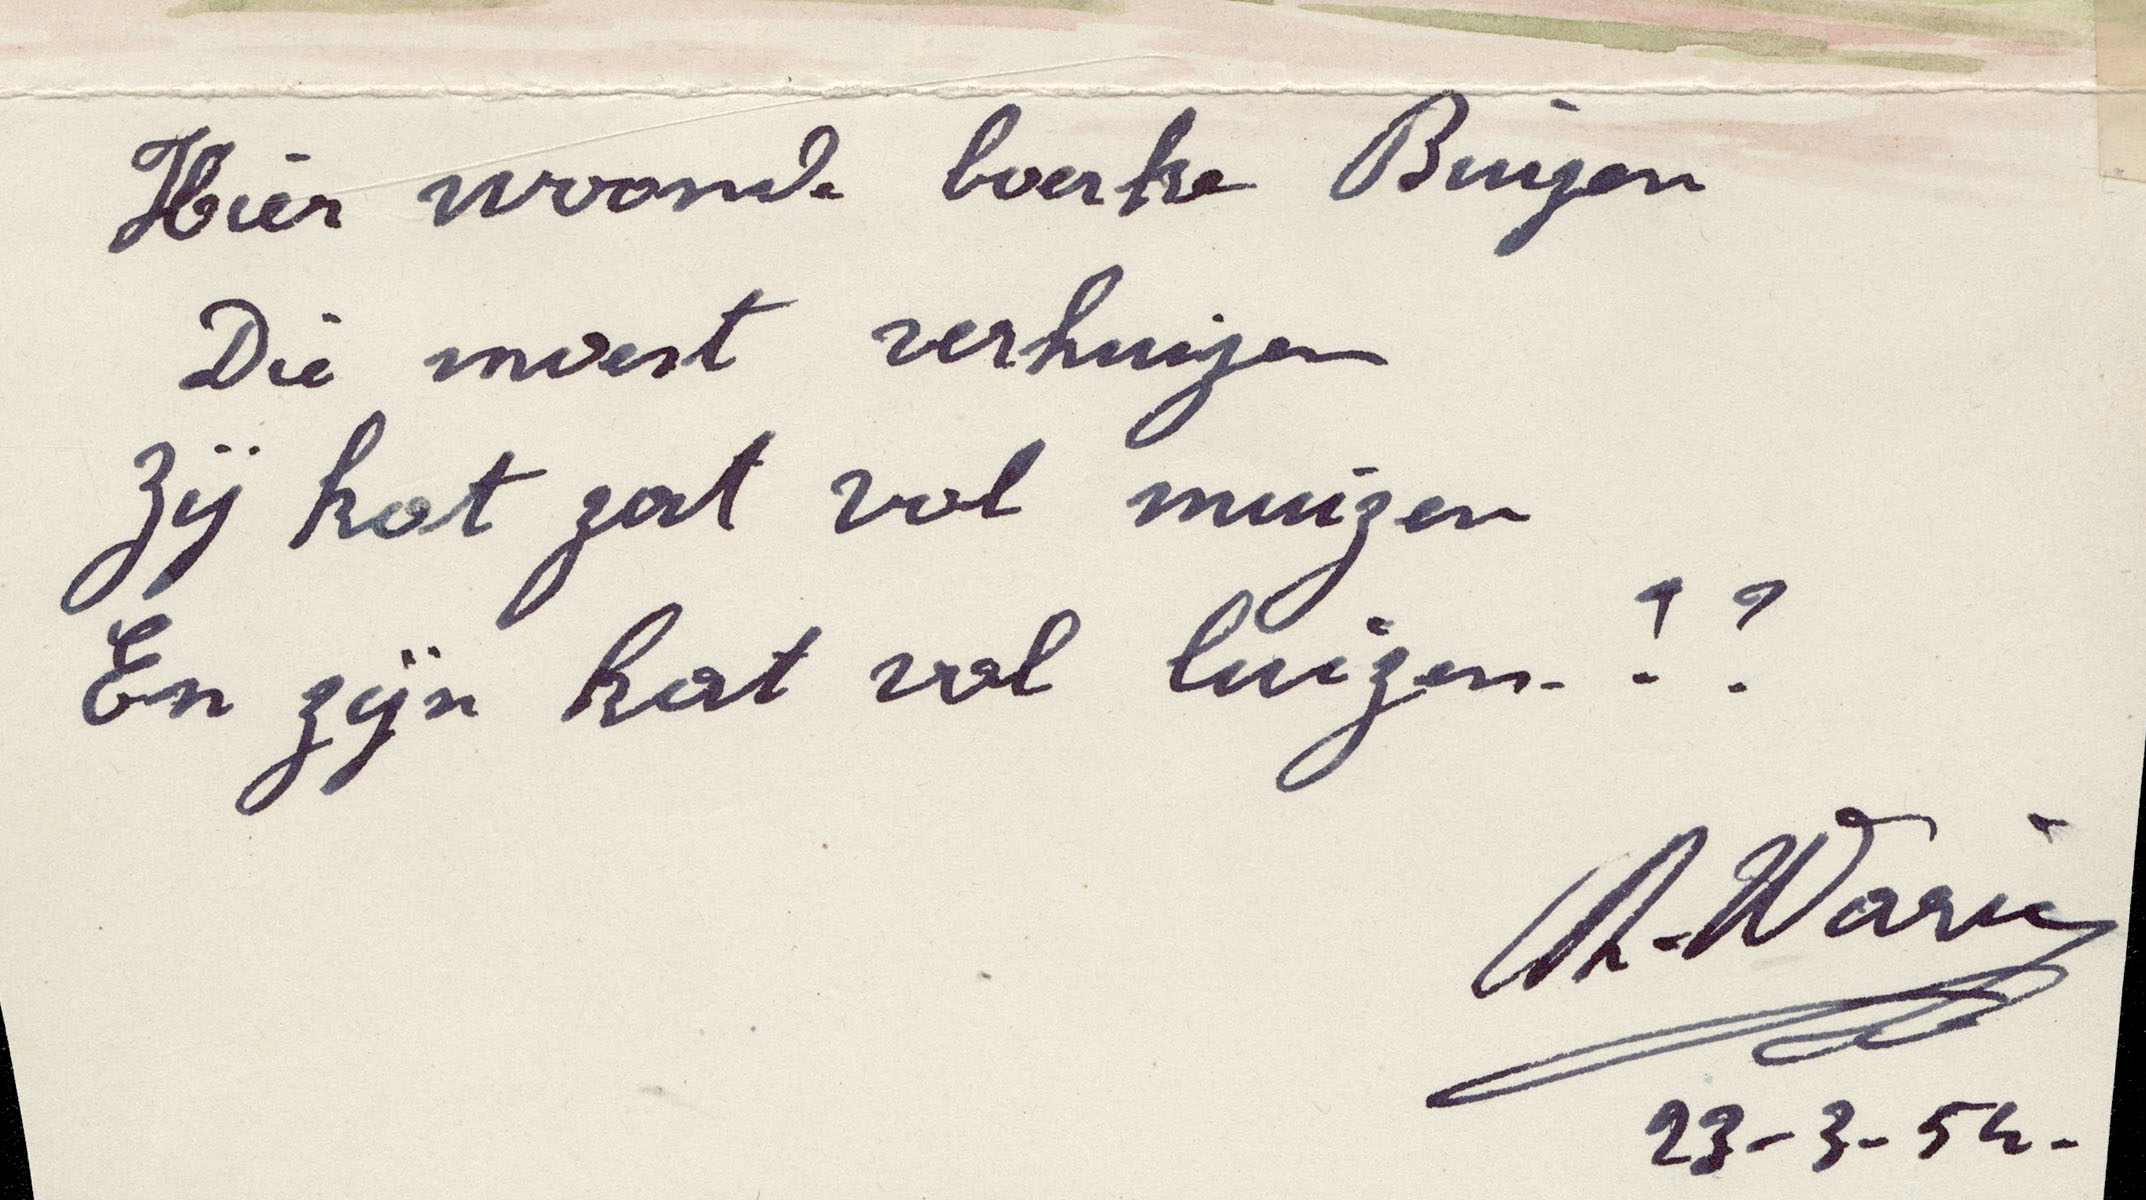 Hier woonde boerke Buizen
Die moest verhuizen
Zij kot zat vol muizen
En zijn kat vol luizen. !?
23-3-54-